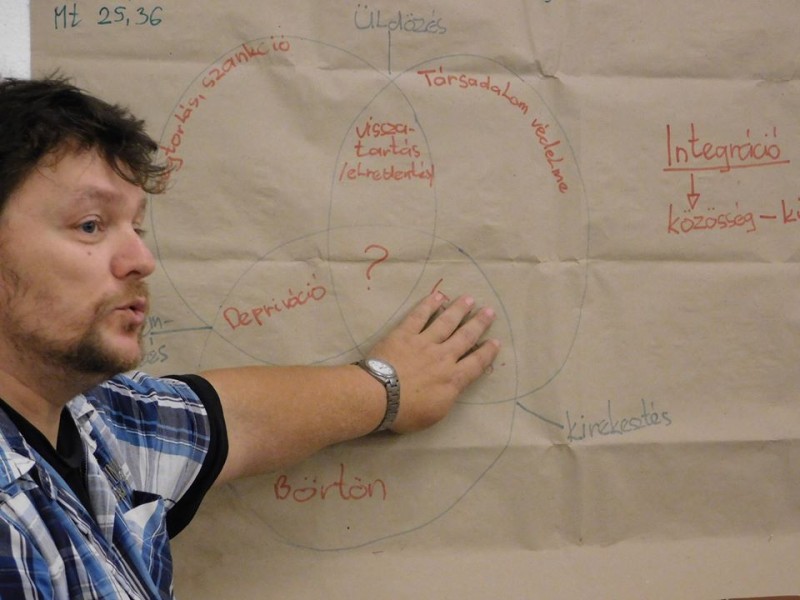 Mt 25,36
Üldözés
szankció
Társadalom védelme
vissza-
tartás
/elrettentés/
Integráció
közösség –
?
Depriváció
kirekesztés
Börtön